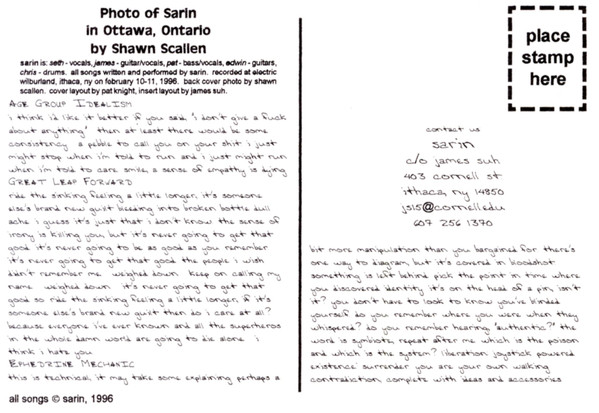 Photo of Sarin
in Ottawa, Ontario
by Shawn Scallen
sarin is: seth - vocals, james - guitar/vocals, pat - bass/vocals, edwin - guitars,
chris - drums. all songs written and performed by sarin. recorded at electric
wilburland, ithaca, ny on february 10-11, 1996. back cover photo by shawn
scallen. cover layout by pat knight, insert layout by james suh.
AGE GROUP IDEALISM
i think i'd like it better if you said, "i don't give a fuck
about anything" then at least there would be some
consistency a pebble to call you on your shit i just
might stop when i'm told to run and i just might run
when i'm told to care smile, a sense of empathy is dying
GREAT LEAP FORWARD
ride the sinking feeling a little longer, it's someone
else's brand new guilt bleeding into broken bottle dull
ache i guess it's just that i don't know the sense of
irony is killing you, but it's never going to get that
good it's never going to be as good as you remember
it's never going to get that good the people i wish
didn't remember me weighed down keep on calling my
name weighed down it's never going to get that
good so ride the sinking feeling a little longer, if it's
someone else's brand new guilt then do i care at all?
because everyone i've ever known and all the superheros
in the whole damn world are going to die alone i
think i hate you
EPHEDRINE MECHANIC
this is technical, it may take some explaining, perhaps a
all songs © sarin, 1996
place
stamp
here
contact us
sarin
c/o james suh
403 cornell st
ithaca, ny 14850
js15@cornell.edu
607 256 1370
bit more manipulation than you bargained for there's
one way to diagram, but it's covered in bloodshot
something is left behind pick the point in time where
you discovered identity it's on the head of a pin, isn't
it? you don't have to look to know you've blinded
yourself do you remember where you were when they
whispered? do you remember hearing "authentic?" the
word is symbiote, repeat after me which is the poison
and which is the system? liberation joystick powered
existence surrender you are your own walking
contradiction, complete with ideas and accessories